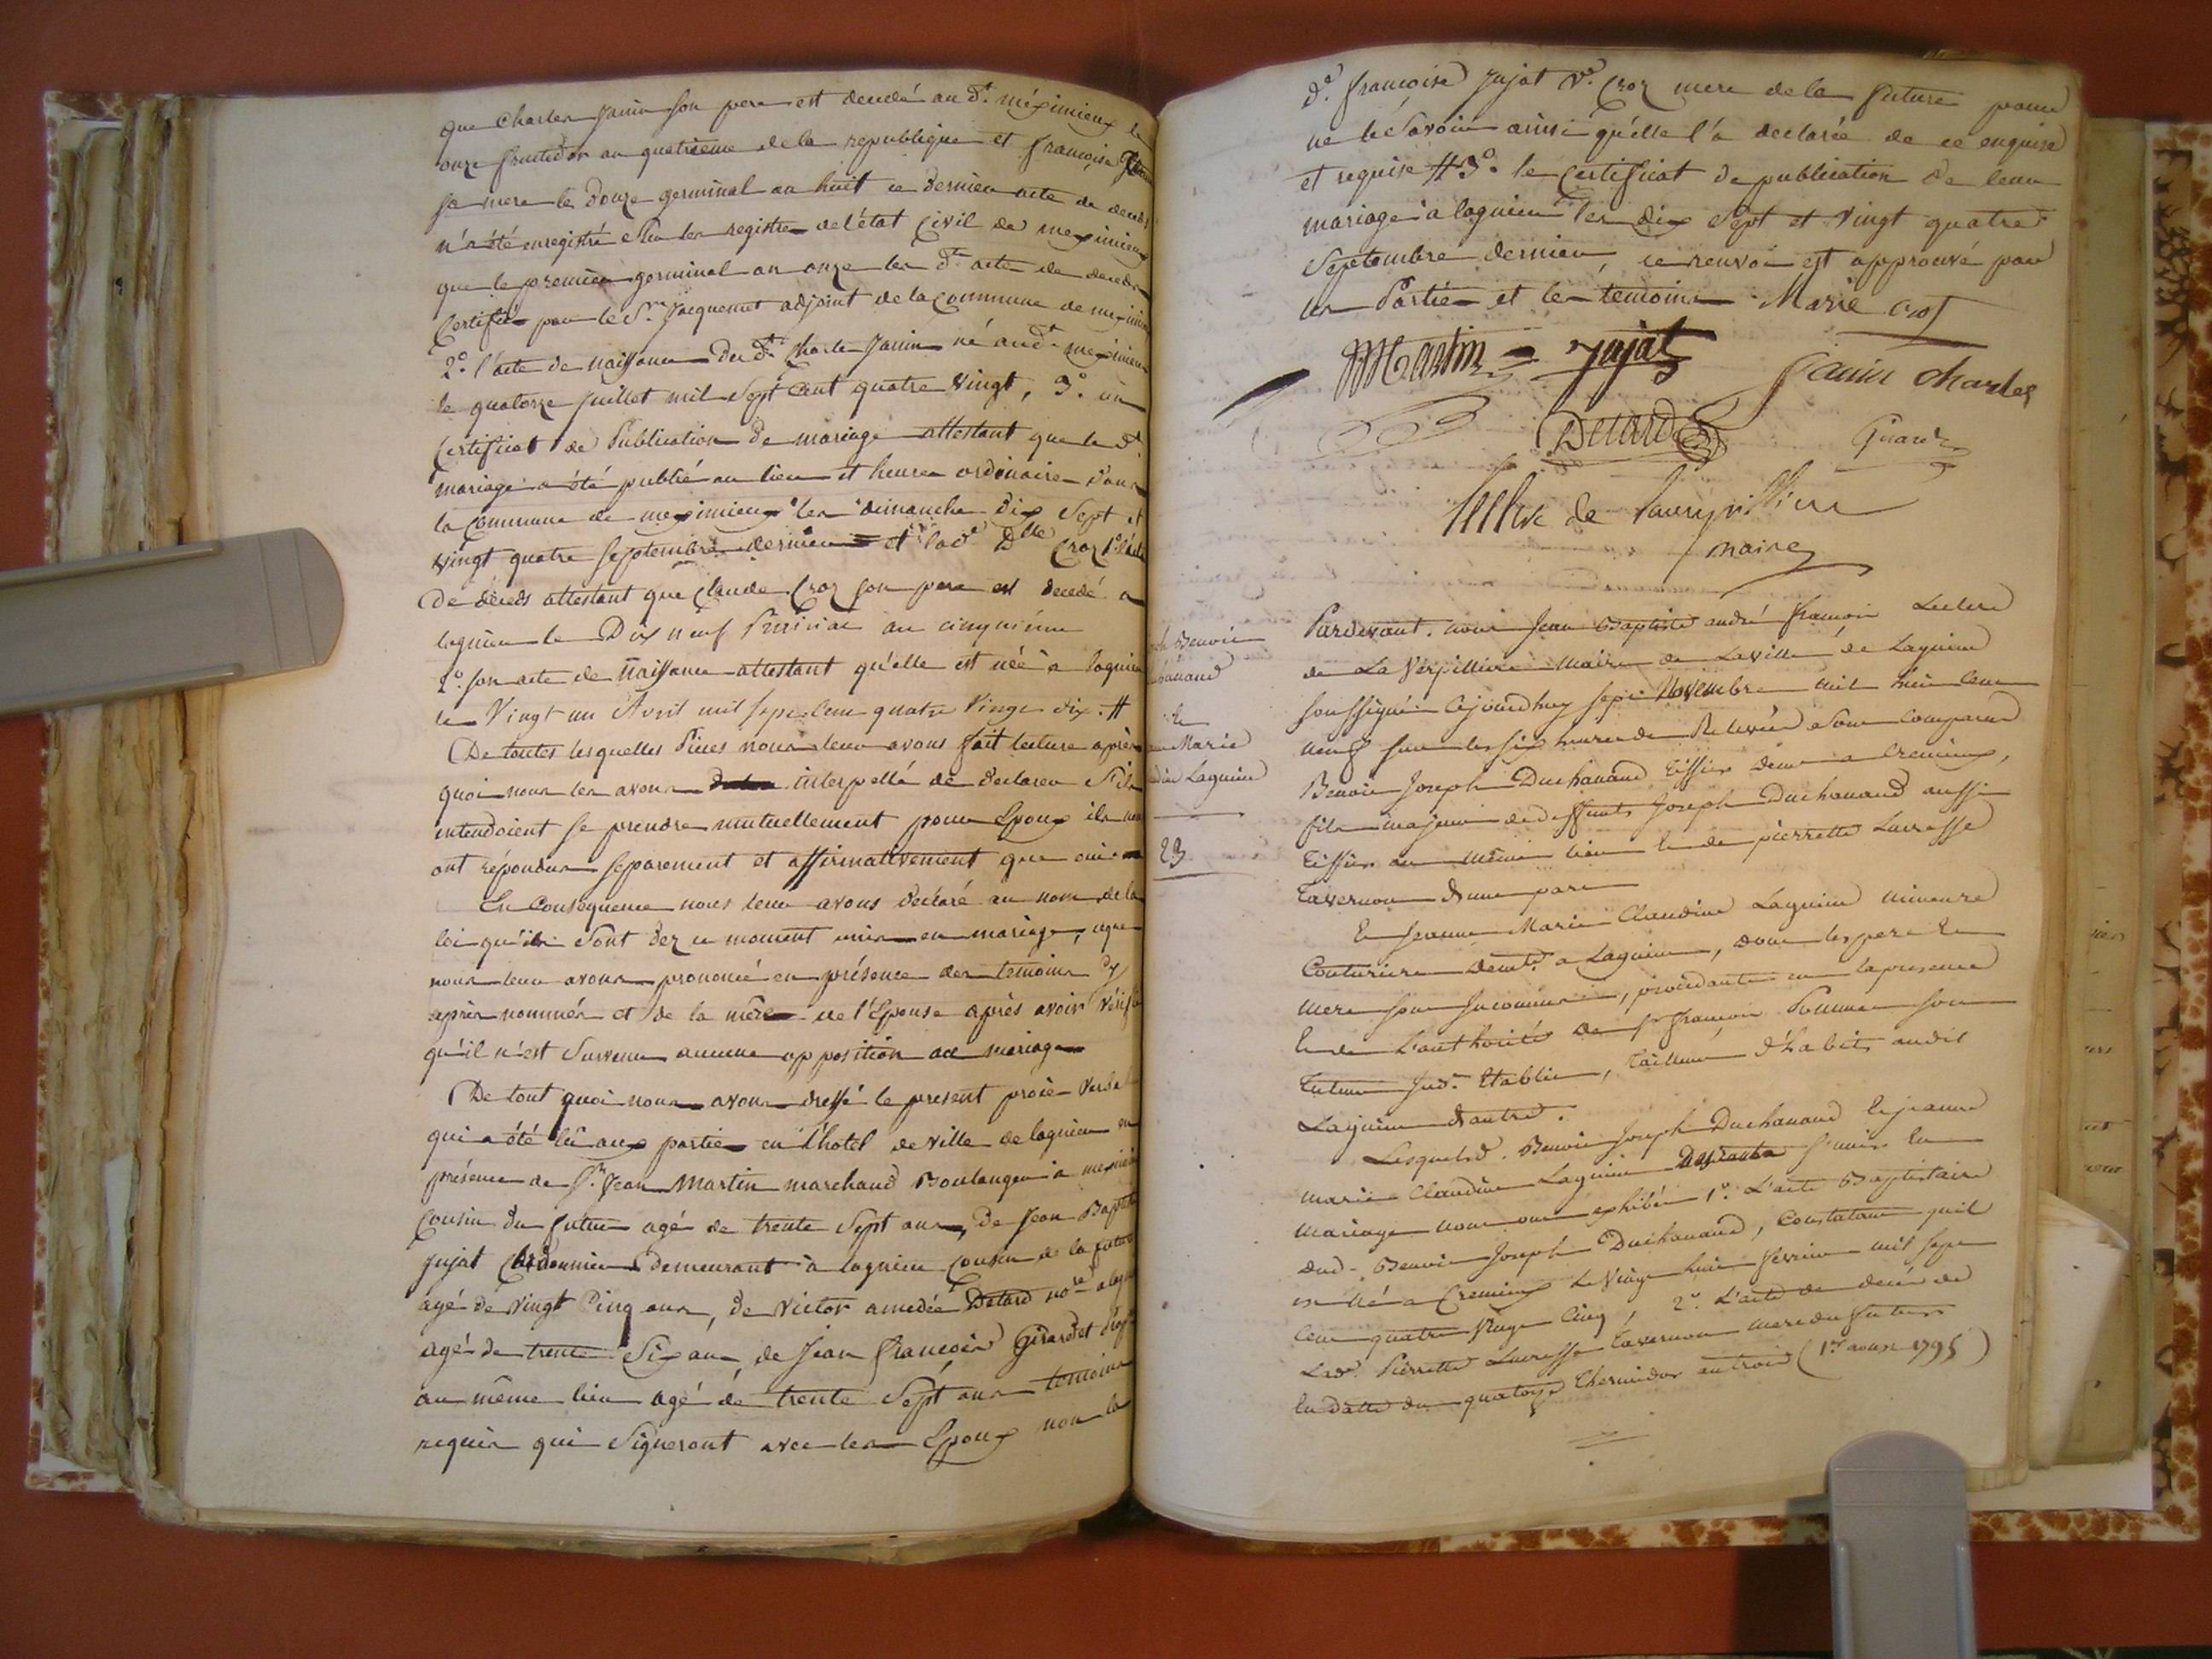 que Charles Janin son pere est decedé au dt. méximieux le
onze fructidor an quatrieme de la republique et françoise
sa mere le douze germinal an huit ce dernier acte de decés
n'a été enregistré sur les registres de l'état Civil de meximieux
que le premier germinal an onze les dts actes de decès
Certifiés par le Sr. Jacquemet adjoint de la Commune de meximieux
2° l'acte de naissance du dt Charles Janin né audt meximieux
le quatorze juillet mil Sept Cent quatre Vingt, 3° un
Certificat de Publication de mariage attestant que le dt
mariage a été publié au lieu et heures ordinaires dans
la Commune de meximieux les dimanche dix Sept et
vingt quatre septembre dernier = et lade Dlle Croz 1° l'acte
De décès attestant que Claude Croz son pere est decedé a
lagnieu le Dix neuf Prairial an cinquième
2° son acte de naissance attestant qu'elle est née à lagnieu
le Vingt un Avril mil sept cent quatre Vingt dix. #
De toutes lesquelles Pieces nous leur avons fait lecture après
quoi nous les avons interpellé de declarer S'ils
entendoient se prendre mutuellement pour Epoux ils nous
ont répondus separement et affirmativement que oui
En Consequence nous leur avons déclaré au nom de la
loi qu'ils Sont dez ce moment unis en mariage, ce que
nous leur avons prononcé en présence des temoins cy
après nommés et de la mère de l'Epouse après avoir vérifié
qu'il n'est Survenu aucune opposition au mariage
De tout quoi nous avons dressé le present procès Verbal
qui a été lû aux parties en l'hotel de ville de lagnieu en
présence de Sr. Jean Martin marchand Boulanger à meximieux
Cousin du futur agé de trente Sept ans, De Jean Baptiste
Jujat Cordonnier Demeurant à lagnieu Cousin de la future
agé de vingt Cinq ans, de Victor amedée Detard nore a lagnieu
agé de trente Six ans, de Jean françois Girardet
au même lieu agé de trente Sept ans temoins
requis qui Signeront avec les Epoux non la
de. françoise Jujat Ve. Croz mere de la future pour
ne le Savoir ainsi qu'elle l'a declarée de ce enquise
et requise # 3° le Certificat de publication de leur
mariage à lagnieu les dix Sept et Vingt quatre
Septembre dernier, ce renvoi est approuvé par
les Parties et les temoins Marie Croz
JMartin Jujat
Janin charles
Detard
Girard
Leclerc de Laverpilliere
maire
Benoit
Duchanand
et
Marie
Claudine Lagnieu
23
Pardevant nous Jean Baptiste andré françois Leclerc
de La Verpilliere Maire de la ville de Lagnieu
soussigné Cejourdhuy sept Novembre mil huit cent
neuf sur les six heures de Relevée Sont Comparus
Benoit Joseph Duchanand Tissier demt a Cremieux,
fils majeur de deffunts Joseph Duchanand aussi
Tissier au même lieu et de pierrette Lucresse
Tavernon d'une part
Et Jeanne Marie Claudine Lagnieu mineure
Couturiere demte. a Lagnieu, dont les pere et
mere sont Inconnus, procedante en la presence
et de L'authorité de Sr françois Pommier son
Tuteur Judre. Etablie, Tailleur d'habits audit
Lagnieu d'autre.
Lesquels d. Benoit Joseph Duchanand et jeanne
marie Claudine Lagnieu Desirants s'unir en
mariage nous ont exhibés 1° L'acte Baptistaire
dud. Benoit Joseph Duchanand, Constatant quil
est Né a Cremieux le Vingt huit fevrier mil sept
Cent quatre Vingt Cinq, 2° L'acte de decés de
Lade. Pierrette Lucresse Tavernon mere du futur
En datte du quatorze Thermidor an trois (1er aoust 1795)